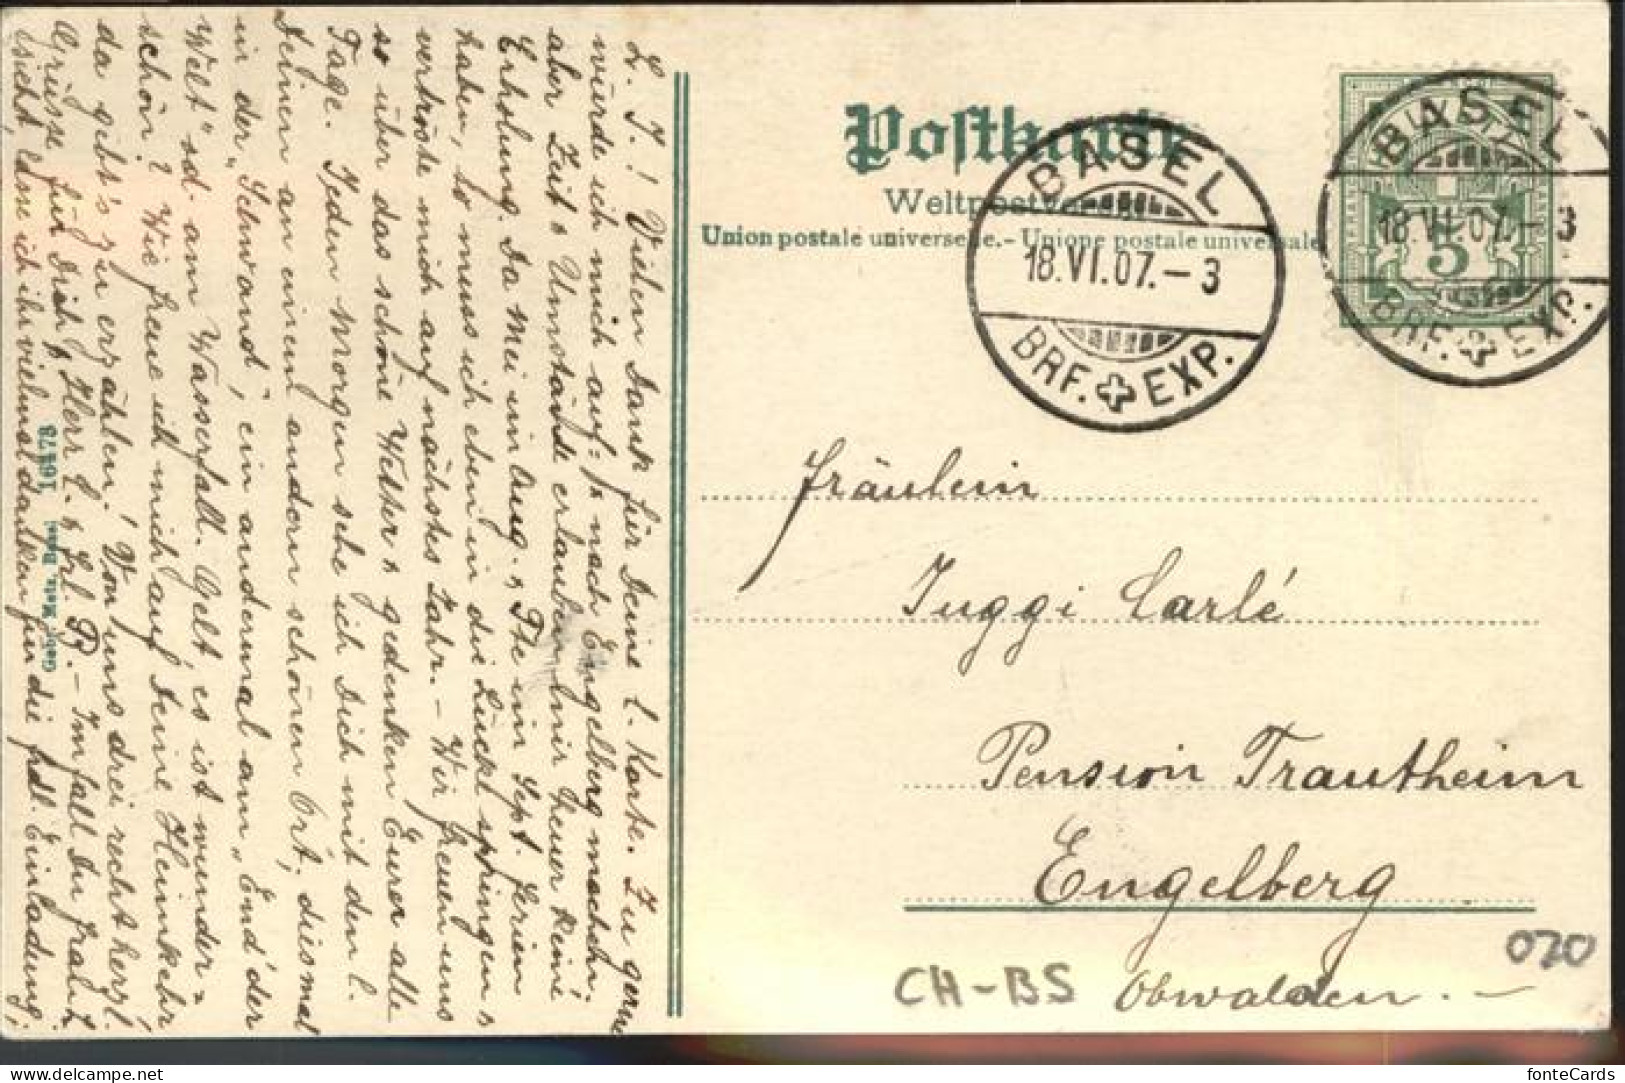 L. J.! Vielen Dank für Deine l. Karte. Zu gerne
würde ich mich auf= & nach Engelberg machen;
aber Zeit & Umstände erlauben mir heuer keine
Erholung. Da Mei im Aug. & The im Sept. Ferien
haben, so muss ich eben in die Lücke springen &
vertröste mich auf nächstes Jahr. – Wir freuen uns
so über das schöne Wetter & gedenken Eurer alle
Tage. Jeden Morgen sehe ich Dich mit dem l.
Deinen an einem andern schönen Ort, diesmal
in der „Schwand", ein andermal am „End' der
Welt" od. am Wasserfall. Gelt, es ist wunder=
schön? Wie freue ich mich auf Deine Heimkehr,
da gibt's zu erzählen! Von uns drei recht herzl.
Grüsse für Dich & Herr C. & Frl. P. – Im Fall Du Frau H.
siehst, lasse ich ihr vielmal danken für die frdl. Einladung;
Gebr. Metz, Basel 16473
Postkarte
Weltpostverein
Union postale universelle. – Unione postale universale
BASEL
18.VI.07. – 3
BRF. EXP.
BASEL
18.VI.07. – 3
BRF. EXP.
5
Fräulein
Juggi Carlé
Pension Trautheim
Engelberg
Obwalden. –
CH-BS
020
fonteCards